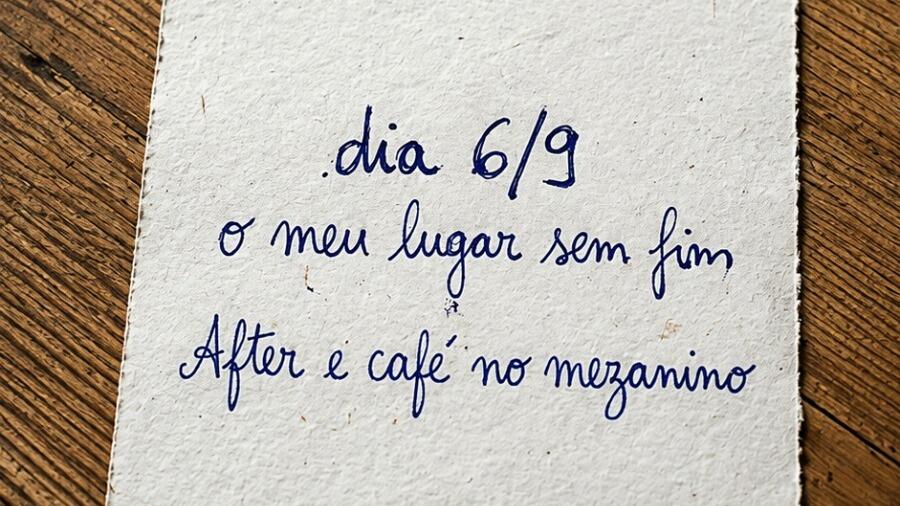 .dia 6/9
o meu lugar sem fim
After e café no mezanino